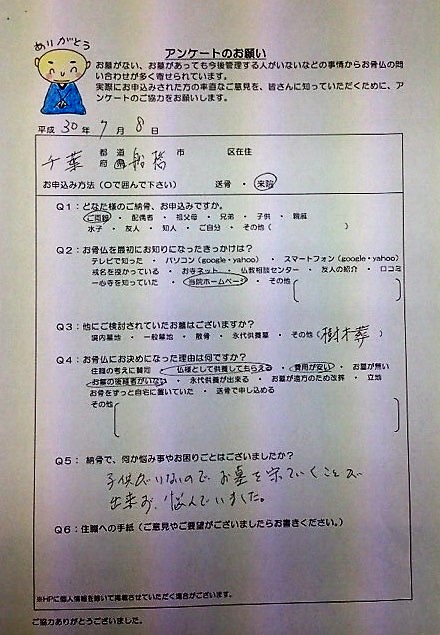 ありがとう
アンケートのお願い
お墓がない、お墓があっても今後管理する人がいないなどの事情からお骨仏の問
い合わせが多く寄せられています。
実際にお申込みされた方の率直なご意見を、皆さんに知っていただくために、ア
ンケートのご協力をお願いします。
平成 30 年 7 月 8 日
千葉 都 道 府 県 船橋 市 区在住
お申込み方法（○で囲んで下さい） 送骨 ・ 来院
Q1：どなた様のご納骨、お申込みですか。
ご両親 ・ 配偶者 ・ 祖父母 ・ 兄弟 ・ 子供 ・ 親戚
水子 ・ 友人 ・ 知人 ・ ご自分 ・ その他（ ）
Q2：お骨仏を最初にお知りになったきっかけは？
テレビで知った ・ パソコン（google・yahoo） ・ スマートフォン（google・yahoo）
戒名を授かっている ・ お寺ネット ・ 仏教相談センター ・ 友人の紹介 ・ 口コミ
一心寺を知っていた ・ 当院ホームページ ・ その他
Q3：他にご検討されていたお墓はございますか？
境内墓地 ・ 一般墓地 ・ 散骨 ・ 永代供養墓 ・ その他（樹木葬）
Q4：お骨仏にお決めになった理由は何ですか？
住職の考えに賛同 ・ 仏様として供養してもらえる ・ 費用が安い ・ お墓が無い
お墓の後継者がいない ・ 永代供養が出来る ・ お墓が遠方のため改葬 ・ 立地
お骨をずっと自宅に置いていた ・ 送骨で申し込める
その他
Q5：納骨で、何か悩み事やお困りごとはございましたか？
子供がいないので お墓を守っていくことが
出来ず、悩んでいました。
Q6：住職への手紙（ご意見やご要望がございましたらお書きください。）
※HPに個人情報を除いて掲載させていただく場合がございます。
ご協力ありがとうございました。